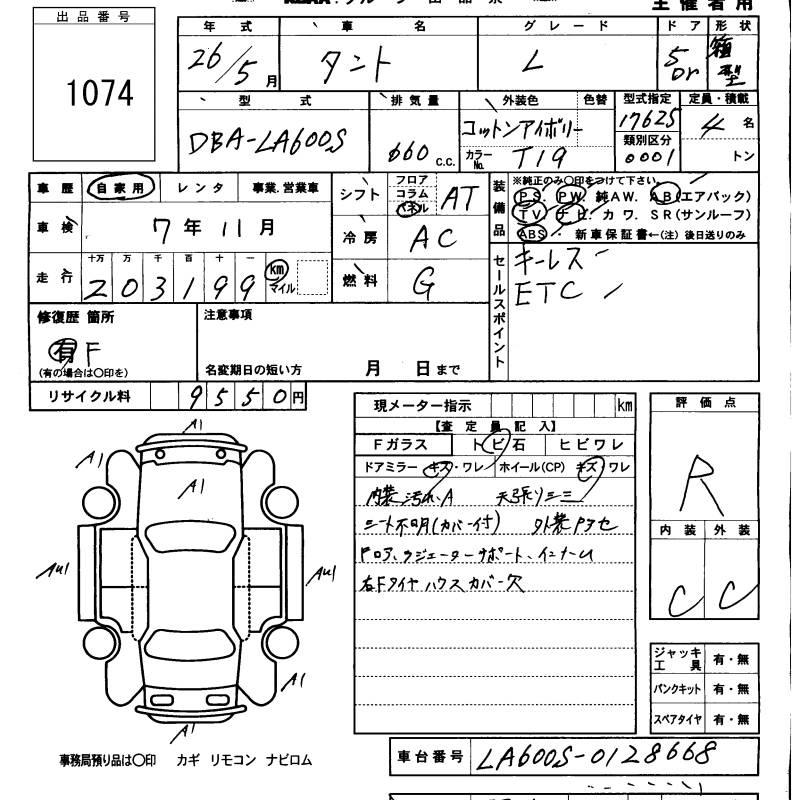 主催者用
出品番号
1074
年式 車名 グレード ドア 形状
26/5月 タント L 5Dr 箱型
型式 排気量 外装色 色替 型式指定 定員・積載
DBA-LA600S 660c.c. コットンアイボリー 17625 4名
カラーNo. T19 類別区分 0001 トン
車歴 自家用 レンタ 事業.営業車
車検 7年11月
走行 十万 万 千 百 十 一
203199 km マイル
シフト フロア コラム パネル AT
冷房 AC
燃料 G
装備品 ※純正のみ○印をつけて下さい。
PS. PW. 純AW. AB(エアバック)
TV. ナビ. カワ. SR(サンルーフ)
ABS 新車保証書←(注)後日送りのみ
セールスポイント
キーレス
ETC
修復歴 箇所
有 F
(有の場合は○印を)
注意事項
名変期日の短い方 月 日まで
リサイクル料 9550円
現メーター指示 km
【査定員記入】
Fガラス トビ石 ヒビワレ
ドアミラー キズ・ワレ ホイール(CP) キズ ワレ
内装汚れA 天張りシミ
シート不明(カバー付) 外装
ラジエーターサポート、インナーU
右Fタイヤハウスカバー欠
評価点
R
内装 外装
C C
A1
A1
A1
AU1 AU1
A1
A1
ジャッキ工具 有・無
パンクキット 有・無
スペアタイヤ 有・無
事務局預り品は○印 カギ リモコン ナビロム
車台番号 LA600S-0128668